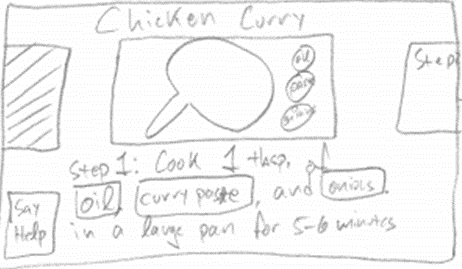 Chicken Curry
oil
paste
onions
Step
Step 1: Cook 1 tbsp. of
oil, curry paste, and onions
in a large pan for 5-6 minutes
Say
Help